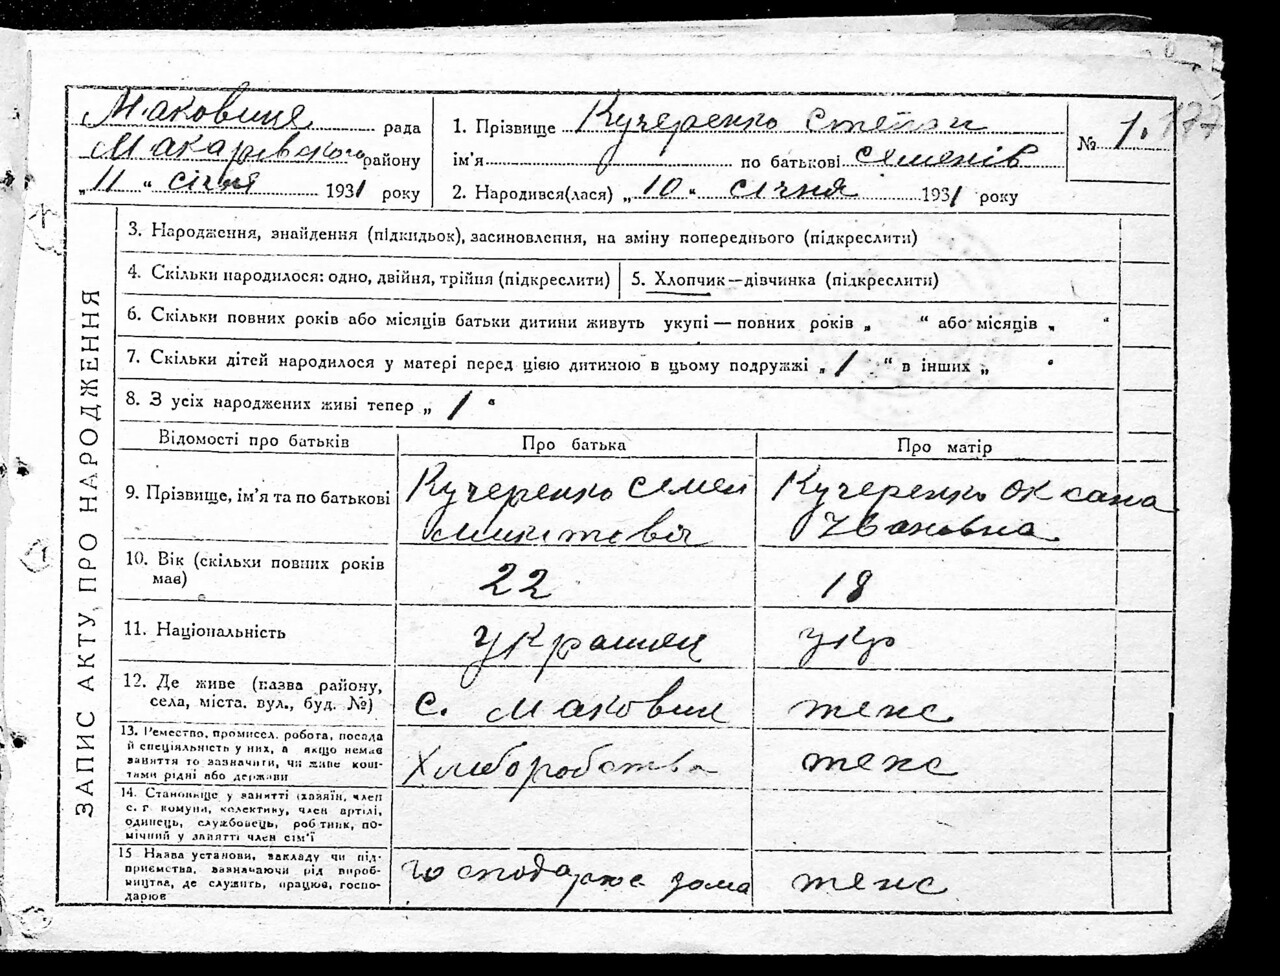 Маковище рада
Макарівського району
„ 11 “ січня 1931 року
1. Прізвище Кучеренко Степан
ім'я по батькові Семенів
2. Народився(лася) „ 10 “ січня 1931 року
№ 1. 177
ЗАПИС АКТУ, ПРО НАРОДЖЕННЯ
3. Народження, знайдення (підкидьок), засиновлення, на зміну попереднього (підкреслити)
4. Скільки народилося: одно, двійня, трійня (підкреслити)
5. Хлопчик—дівчинка (підкреслити)
6. Скільки повних років або місяців батьки дитини живуть укупі — повних років „ “ або місяців „ “
7. Скільки дітей народилося у матері перед цією дитиною в цьому подружжі „ 1 “ в інших „ “
8. З усіх народжених живі тепер „ 1 “
Відомості про батьків Про батька Про матір
9. Прізвище, ім'я та по батькові Кучеренко Семен Кучеренко Оксана
Микитовіч Івановна
10. Вік (скільки повних років
має) 22 18
11. Національність українец укр
12. Де живе (назва району,
села, міста, вул., буд. №) с. Маковищ теж
13. Ремество, промисел, робота, посада
й спеціяльність у них, а якщо немає
заняття то зазначити, чи живе кош-
тами рідні або держави Хліборобство теж
14. Становище у занятті (хазяїн, член
с. г. комуни, колективу, член артілі,
одинець, службовець, робітник, по-
мічний у занятті член сім'ї
15 Назва установи, закладу чи під-
приємства, зазначаючи рід вироб-
ництва, де служить, працює, госпо-
дарює господарює дома теж